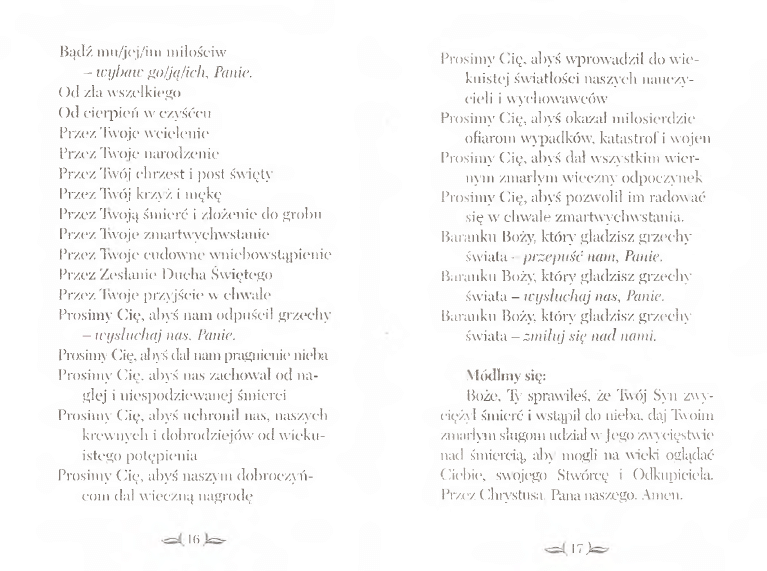 Bądź mu/jej/im miłościw
– wybaw go/ją/ich, Panie.
Od zła wszelkiego
Od cierpień w czyśćcu
Przez Twoje wcielenie
Przez Twoje narodzenie
Przez Twój chrzest i post święty
Przez Twój krzyż i mękę
Przez Twoją śmierć i złożenie do grobu
Przez Twoje zmartwychwstanie
Przez Twoje cudowne wniebowstąpienie
Przez Zesłanie Ducha Świętego
Przez Twoje przyjście w chwale
Prosimy Cię, abyś nam odpuścił grzechy
– wysłuchaj nas, Panie.
Prosimy Cię, abyś dał nam pragnienie nieba
Prosimy Cię, abyś nas zachował od na-
głej i niespodziewanej śmierci
Prosimy Cię, abyś uchronił nas, naszych
krewnych i dobrodziejów od wieku-
istego potępienia
Prosimy Cię, abyś naszym dobroczyń-
com dał wieczną nagrodę
16
Prosimy Cię, abyś wprowadził do wie-
kuistej światłości naszych nauczy-
cieli i wychowawców
Prosimy Cię, abyś okazał miłosierdzie
ofiarom wypadków, katastrof i wojen
Prosimy Cię, abyś dał wszystkim wier-
nym zmarłym wieczny odpoczynek
Prosimy Cię, abyś pozwolił im radować
się w chwale zmartwychwstania.
Baranku Boży, który gładzisz grzechy
świata – przepuść nam, Panie.
Baranku Boży, który gładzisz grzechy
świata – wysłuchaj nas, Panie.
Baranku Boży, który gładzisz grzechy
świata – zmiłuj się nad nami.
Módlmy się:
Boże, Ty sprawiłeś, że Twój Syn zwy-
ciężył śmierć i wstąpił do nieba, daj Twoim
zmarłym sługom udział w Jego zwycięstwie
nad śmiercią, aby mogli na wieki oglądać
Ciebie, swojego Stwórcę i Odkupiciela.
Przez Chrystusa, Pana naszego. Amen.
17